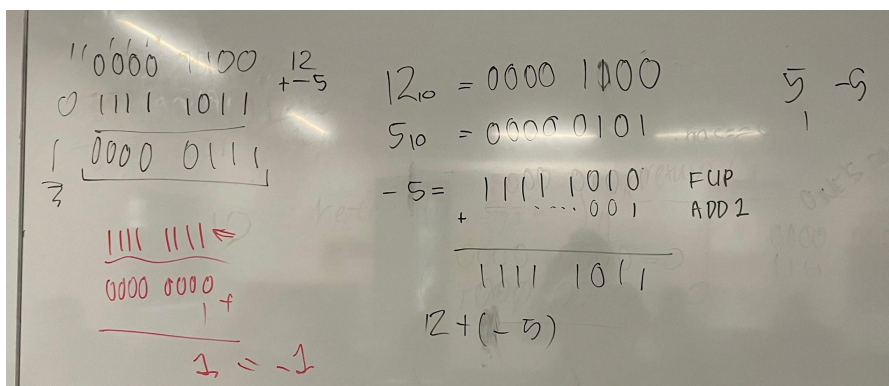 11 0000 1100 12
+-5
0 1111 1011
1 0000 0111
1111 1111 ←
0000 0000
1 +
1 = -1
12₁₀ = 0000 1100
5₁₀ = 0000 0101
- 5 = 1111 1010 FLIP
+ ....001 ADD 1
1111 1011
12 + (- 5)
5 -5
1